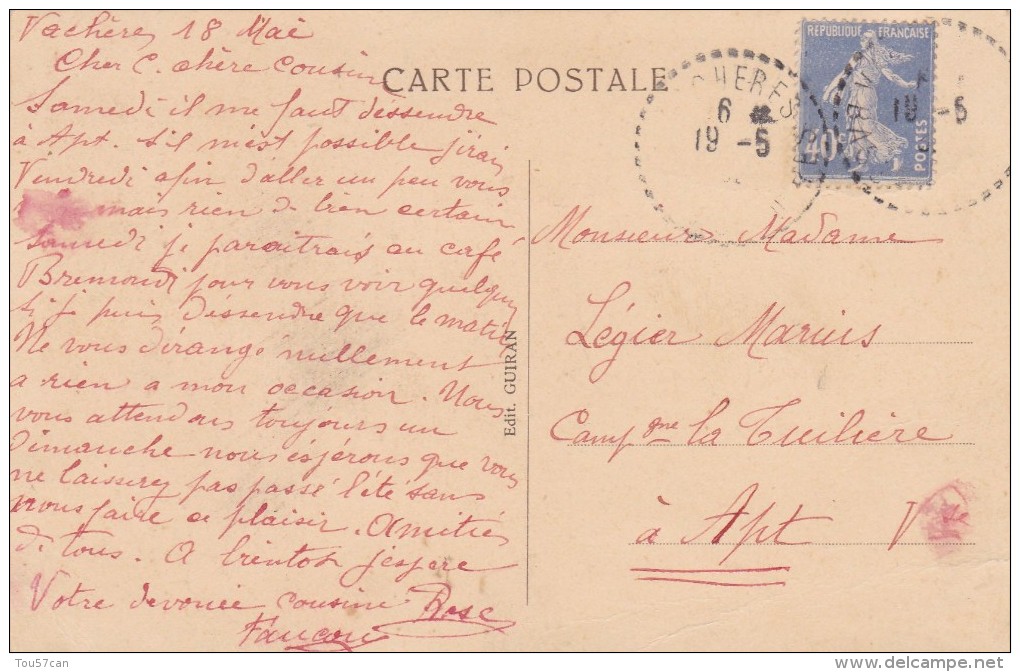 Vachères 18 Mai
Cher C. chère Cousin
CARTE POSTALE
Samedi il me faut dessendre
à Apt. S'il m'est possible j'irai
Vendredi afin d'aller un peu vous
mais rien de bien certain
Samedi je paraitrais au café
Bremondi pour vous voir quelque
si je puis dessendre que le matin
Ne vous dérangé nullement
a rien a mon occasion. Nous
vous attendons toujours un
dimanche nous éspérons que vous
ne laisserez pas passé l'été sans
nous faire ce plaisir. Amitiés
de tous. A bientot j'espere
Votre devouée cousine Rose
Faucon
Edit. GUIRAN
REPUBLIQUE FRANÇAISE
40c
POSTES
CHERES
6
19 -5
19 -5
Monsieur Madame
Légier Marius
Campgne la Tuilière
à Apt Vse
Tou57can
delcampe.net